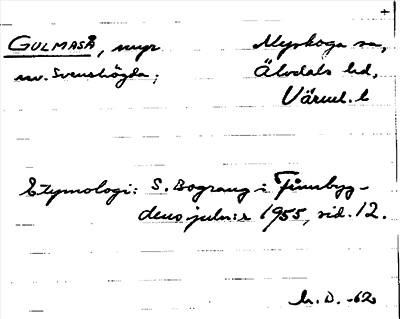 +
GULMASÅ, myr
nv. Svenshögda;
Nyskoga sn,
Älvdals hd,
Värml. l
Etymologi: S. Bograng i Finnbyg-
dens julnr 1955, sid. 12.
-62